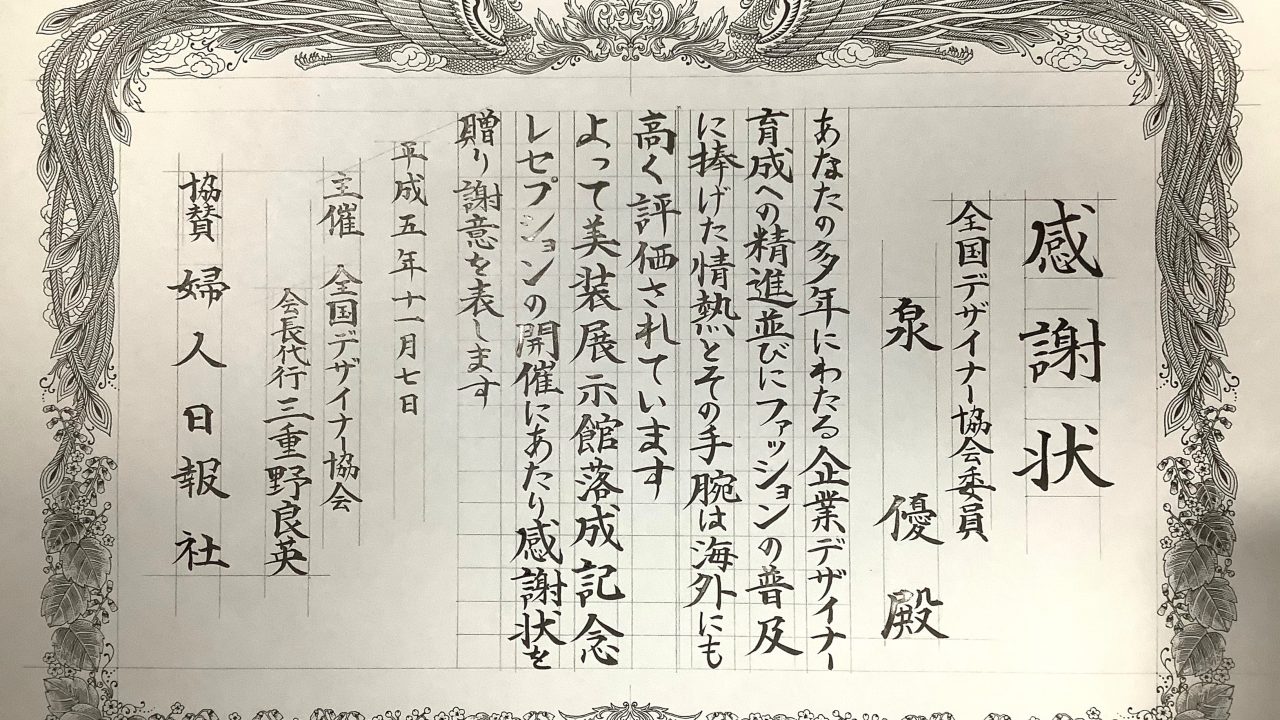 感謝状
全国デザイナー協会委員
泉優殿
あなたの多年にわたる企業デザイナー
育成への精進並びにファッションの普及
に捧げた情熱とその手腕は海外にも
高く評価されています
よって美装展示館落成記念
レセプションの開催にあたり感謝状を
贈り謝意を表します
平成五年十一月七日
主催 全国デザイナー協会
会長代行 三重野良英
協賛 婦人日報社